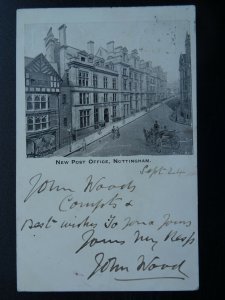 New Post Office, Nottingham.
Sept 24
John Woods
Compts &
Best wishes To
Yours
John Wood